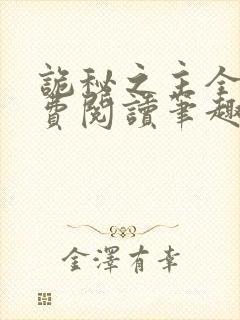 詭秘之主全
費閱讀筆趣
金澤有幸